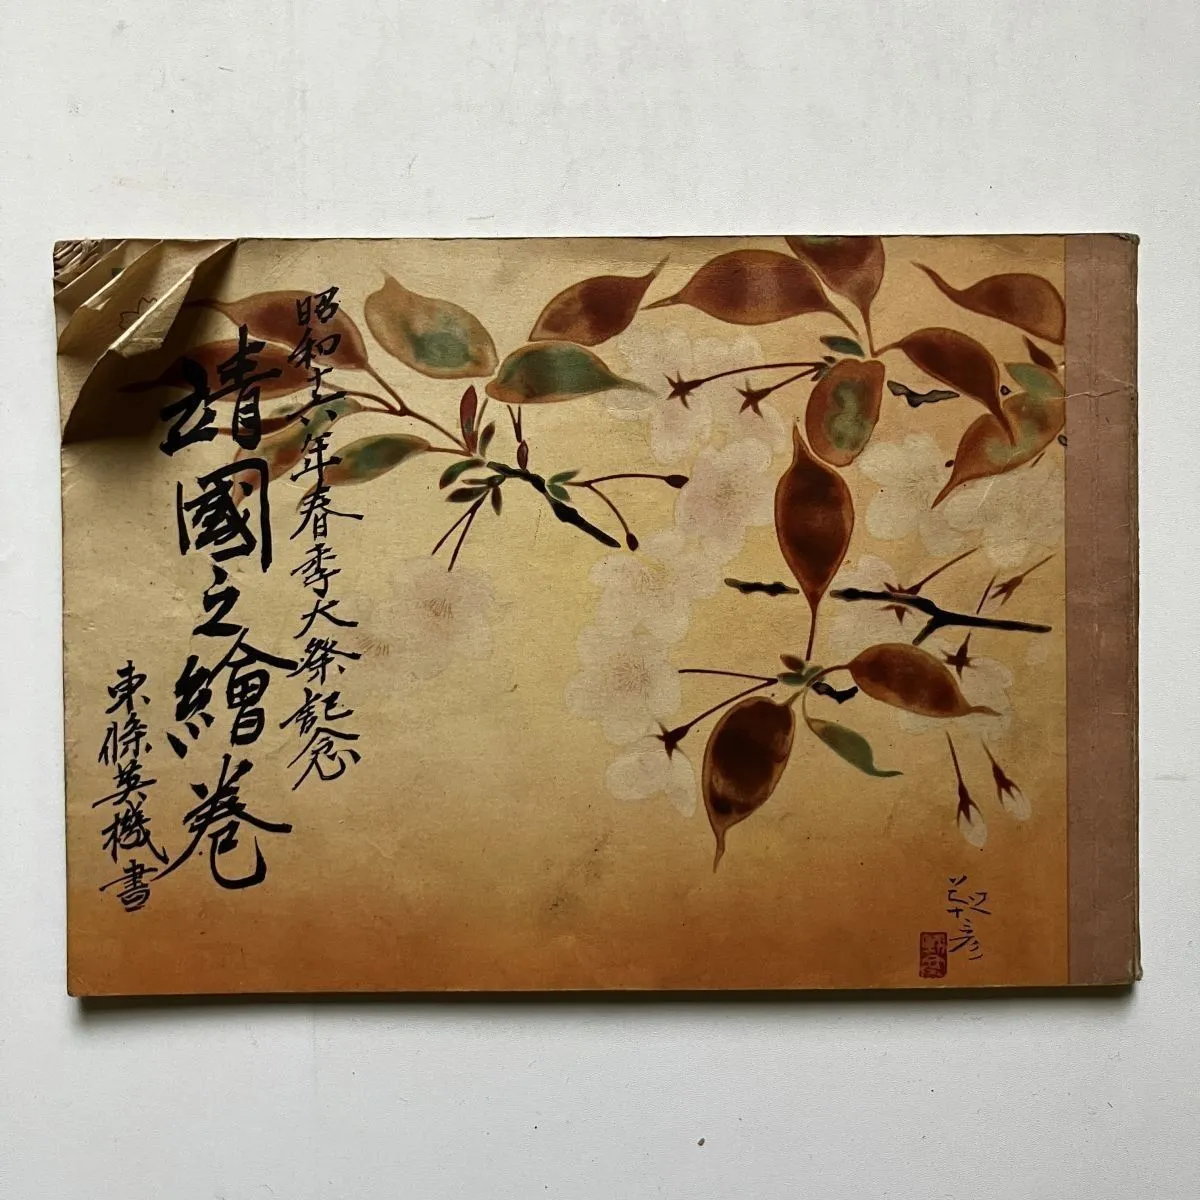 昭和十六年春季大祭記念
靖國之繪巻
東條英機書
靫彦